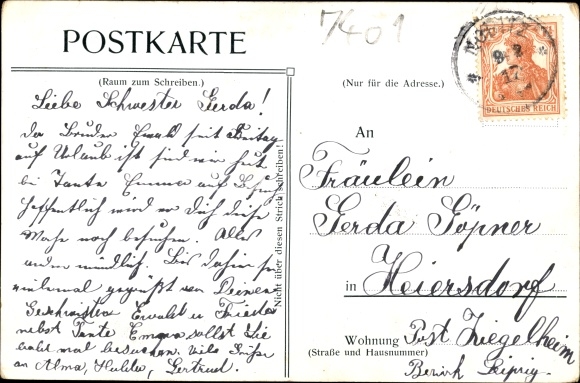 7401
POSTKARTE
(Raum zum Schreiben.)
(Nur für die Adresse.)
DEUTSCHES REICH
Liebe Schwester Gerda!
Da Bruder Ewald seit Freitag
auf Urlaub ist sind wir heut
bei Tante Emma auf Besuch
Hoffentlich wird er Dich diese
Woche noch besuchen. Alles
andere mündlich. Bis dahin sei
vielemal gegrüßt von Deinen
Geschwister Ewald u Frieda
nebst Tante Emma sollst Sie
bald mal besuchen. Viele Grüße
an Alma, Hulda, Gertrud.
Nicht über diesen Strich schreiben!
An
Fräulein
Gerda Göpner
in Heiersdorf
Wohnung Post Ziegelheim
(Straße und Hausnummer)
Bezirk Leipzig